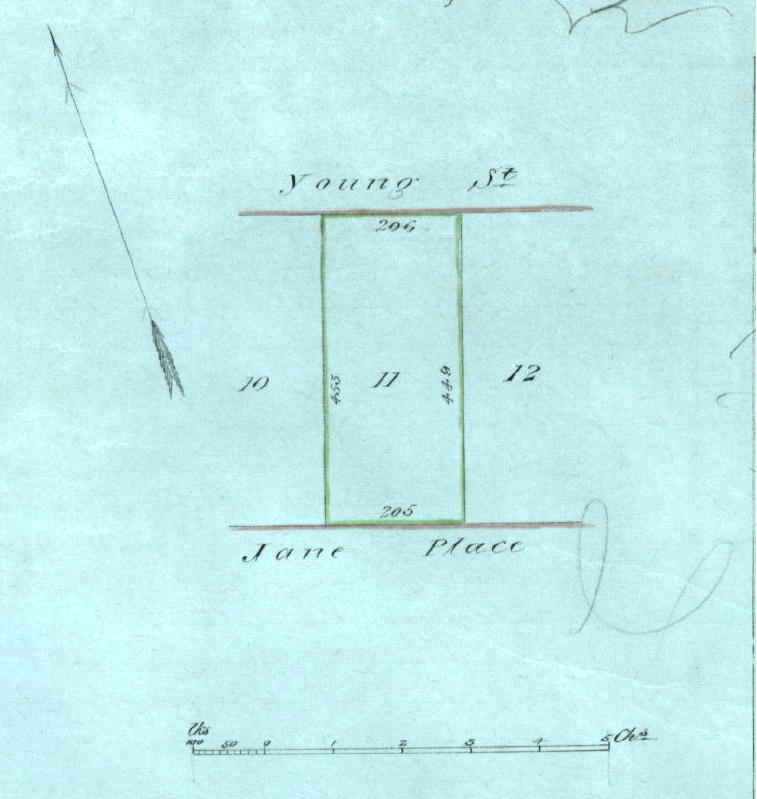 Young St
206
10 453 11 449 12
205
Jane Place
Lks
100 50 0 1 2 3 4 5 Chs